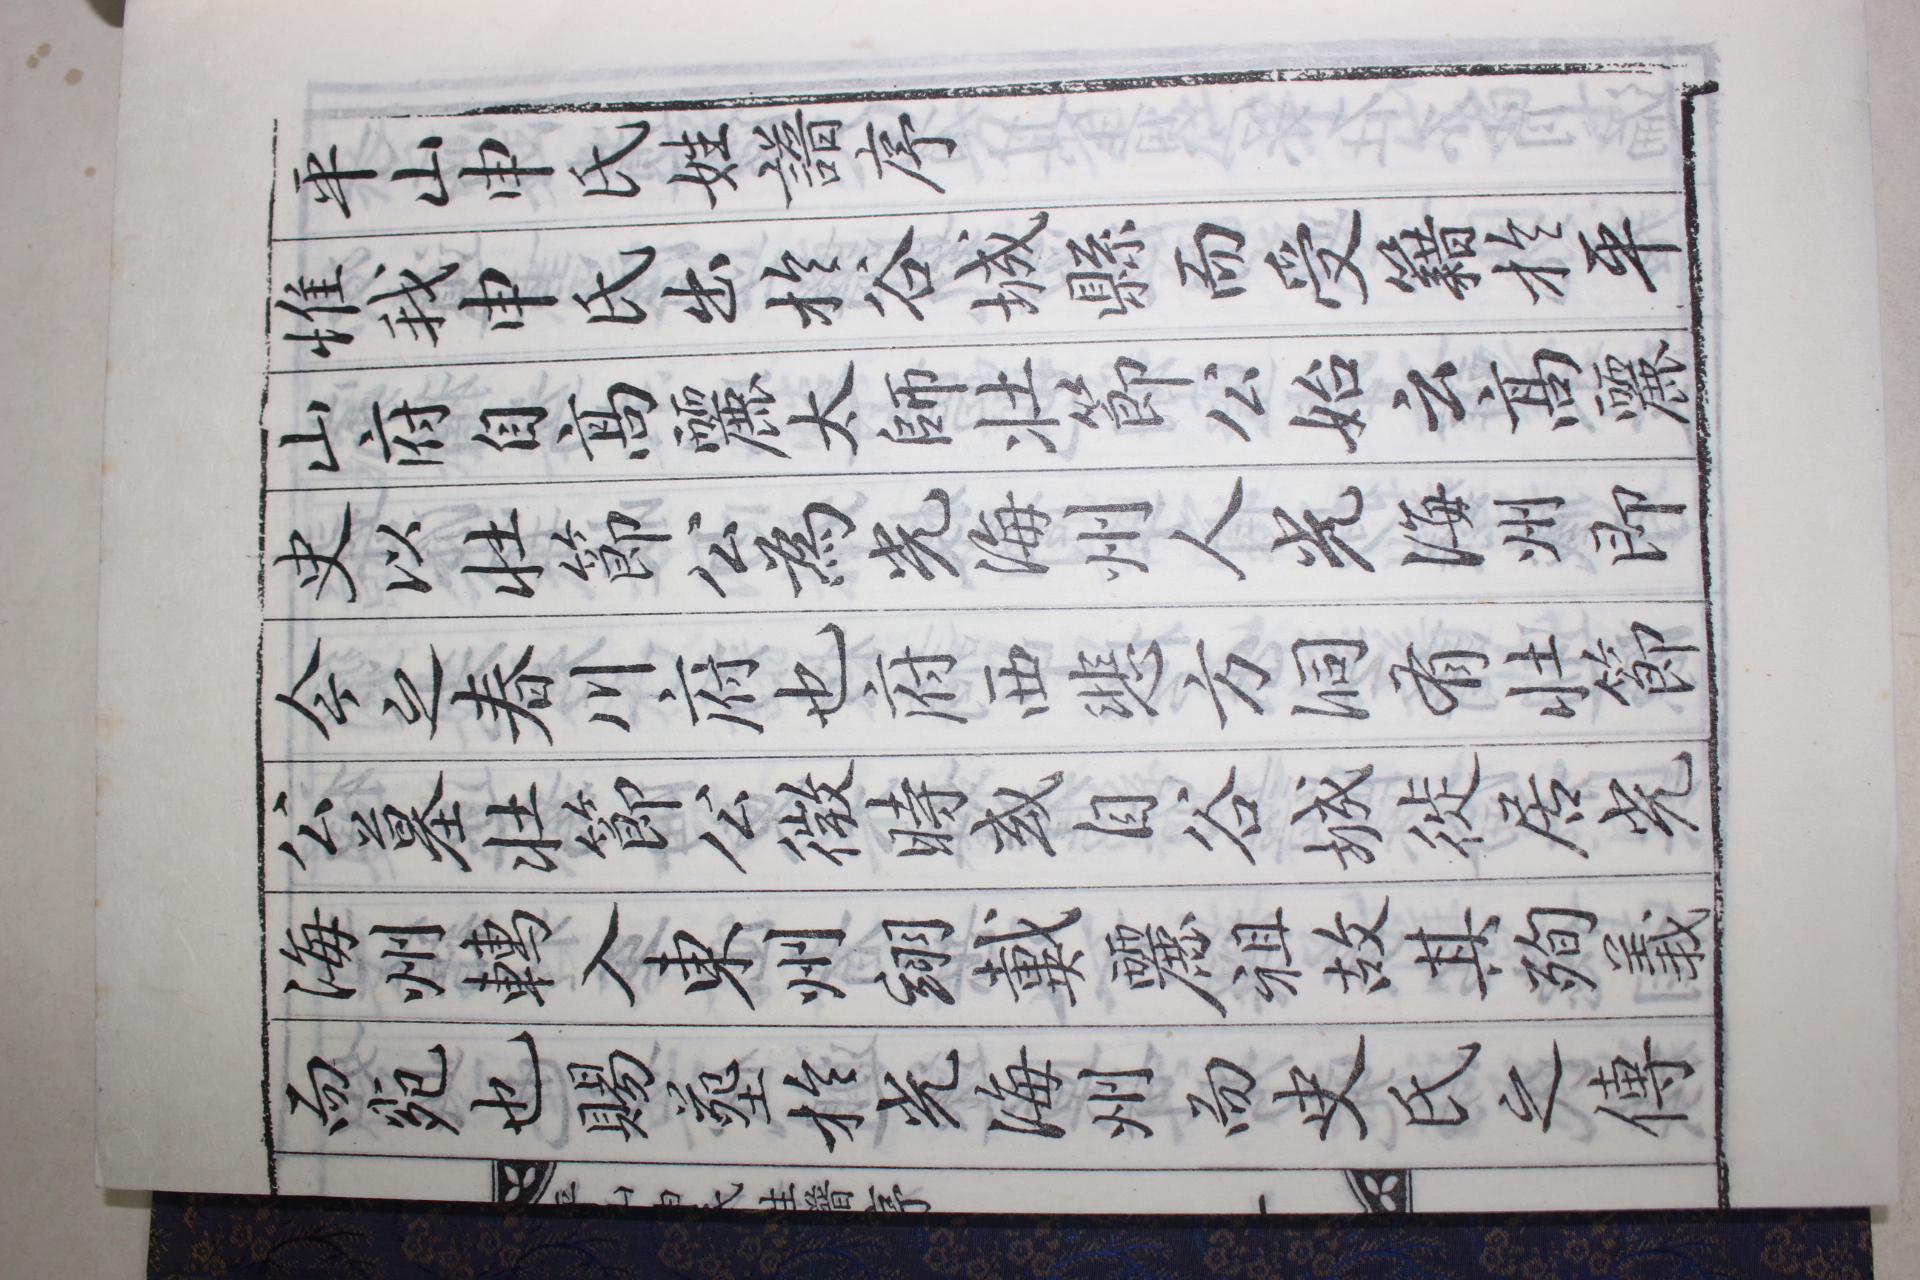 平山申氏姓譜序
惟我申氏出於谷城縣而受籍於平
山府自高麗太師壯節公始云高麗
史以壯節公為光海州人光海州即
今之春川府也府西悲方洞有壯節
公墓壯節公微時或自谷城徙居光
海州轉入東州翊戴麗祖故其殉義
而㱧也賜塟於光海州而史氏之傳
平山申氏姓譜序
一